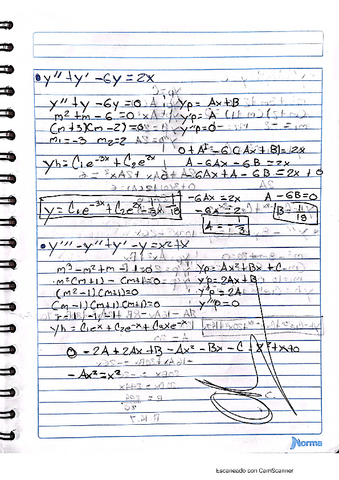 • y'' + y' - 6y = 2x
y'' + y' - 6y = 0 yp = Ax + B
m² + m - 6 = 0 y'p = A
(m + 3)(m - 2) = 0 y''p = 0
m₁ = -3 m₂ = 2
0 + A - 6(Ax + B) = 2x
yh = C₁e^-3x + C₂e^2x A - 6Ax - 6B = 2x
-6Ax + A - 6B = 2x + 0
-6Ax = 2x A - 6B = 0
y = C₁e^-3x + C₂e^2x - 1/3x - 1/18 -6A = 2 B = -1/18
A = -1/3
• y''' - y'' + y' - y = x² + x
m³ - m² + m - 1 = 0 yp = Ax² + Bx + C
m²(m + 1) - (m + 1) = 0 y'p = 2Ax + B
(m² - 1)(m + 1) = 0 y''p = 2A
(m - 1)(m + 1)(m + 1) = 0 y'''p = 0
yh = C₁e^x + C₂e^-x + C₃xe^-x
0 - 2A + 2Ax + B - Ax² - Bx - C = x² + x + 0
- Ax² = x²
Norma
Escaneado con CamScanner